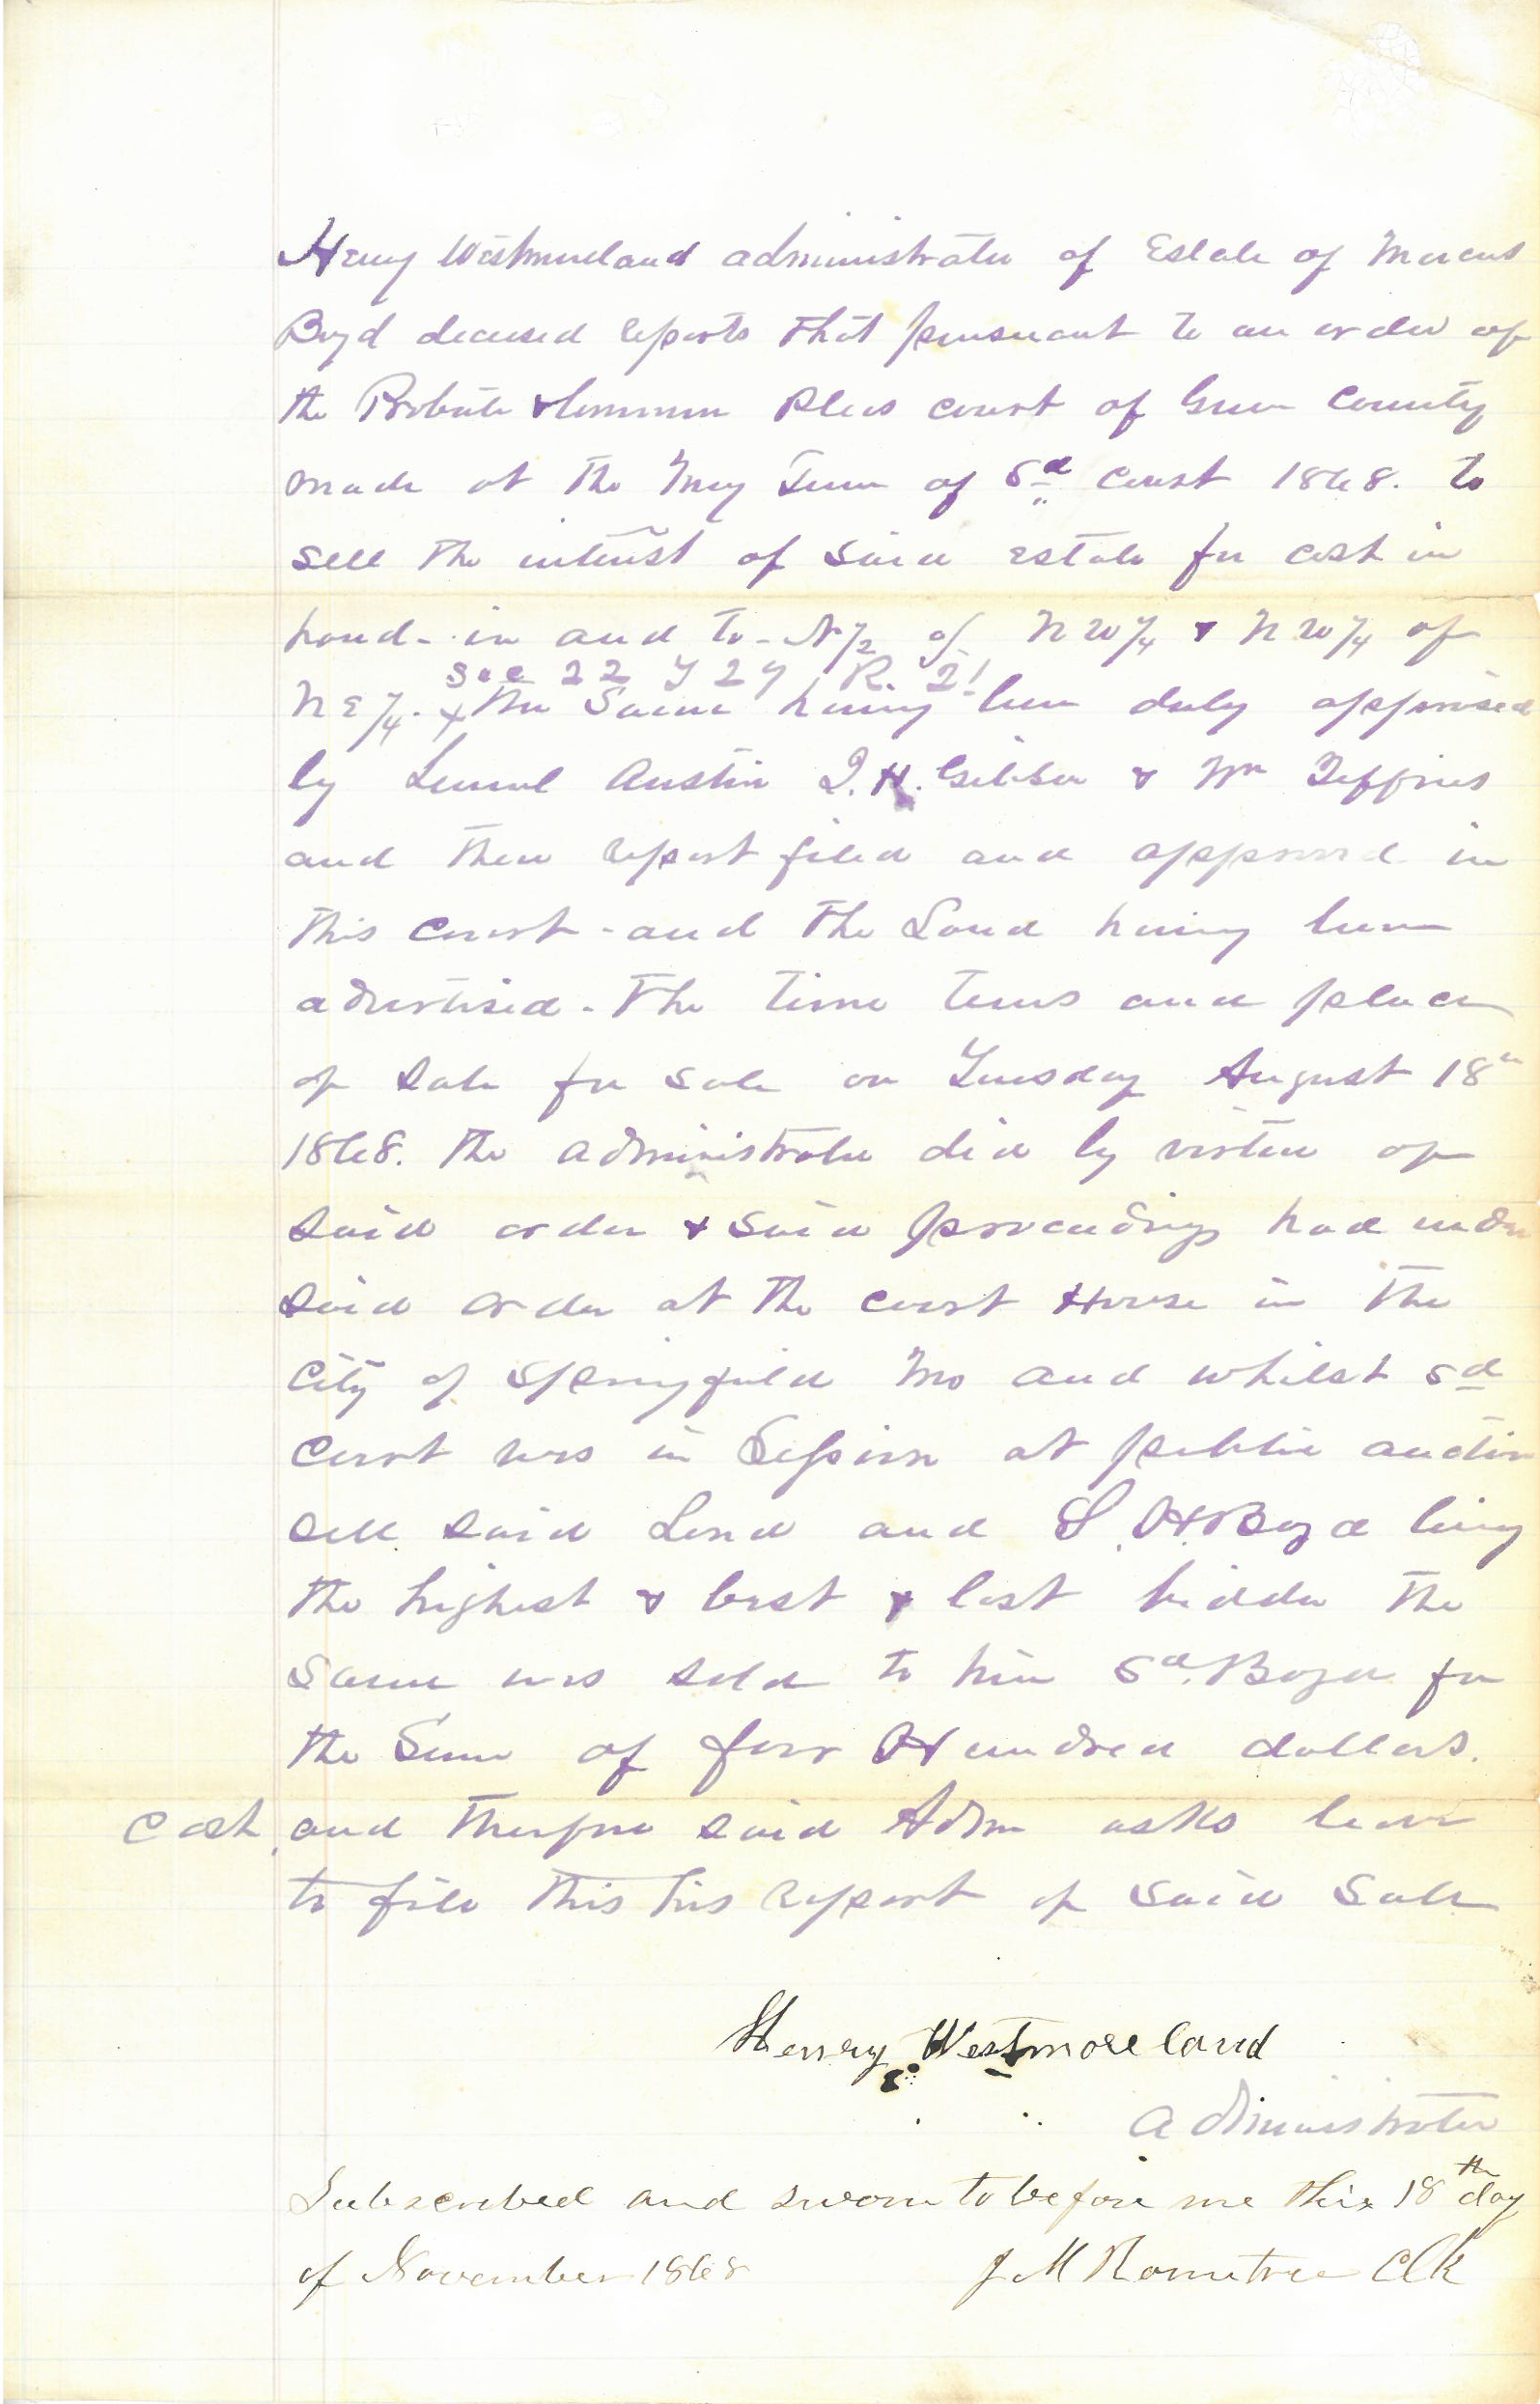 Henry Westmoreland administrator of Estate of Marcus
Boyd deceased reports that pursuant to an order of
the Probate & Common Pleas court of Green County
made at the May Term of Sd court 1868. to
sell the interest of said estate for cash in
hand - in and to - N 1/2 of N W 1/4 & N W 1/4 of
Sec 22 T 29 R. 21
N E 1/4. x the Same having been duly appraised
by Lemuel Austin J. H. & Wm Jeffries
and their report filed and approved in
this court - and the Land having been
advertised - the time terms and place
of sale for sale on Tuesday August 18th
1868. the administrator did by virtue of
said order & said proceedings had under
said order at the court House in the
City of Springfield Mo and whilst sd
court was in Session at public auction
sell said Land and S. H. Boyd being
the highest & best & last bidder the
same was sold to him Sd. Boyd for
the Sum of four Hundred dollars.
cash, and therefore said Admr asks leave
to file this his report of said Sale
Henry Westmoreland
Administrator
Subscribed and sworn to before me this 18th day
of November 1868 J M Rountree Clk